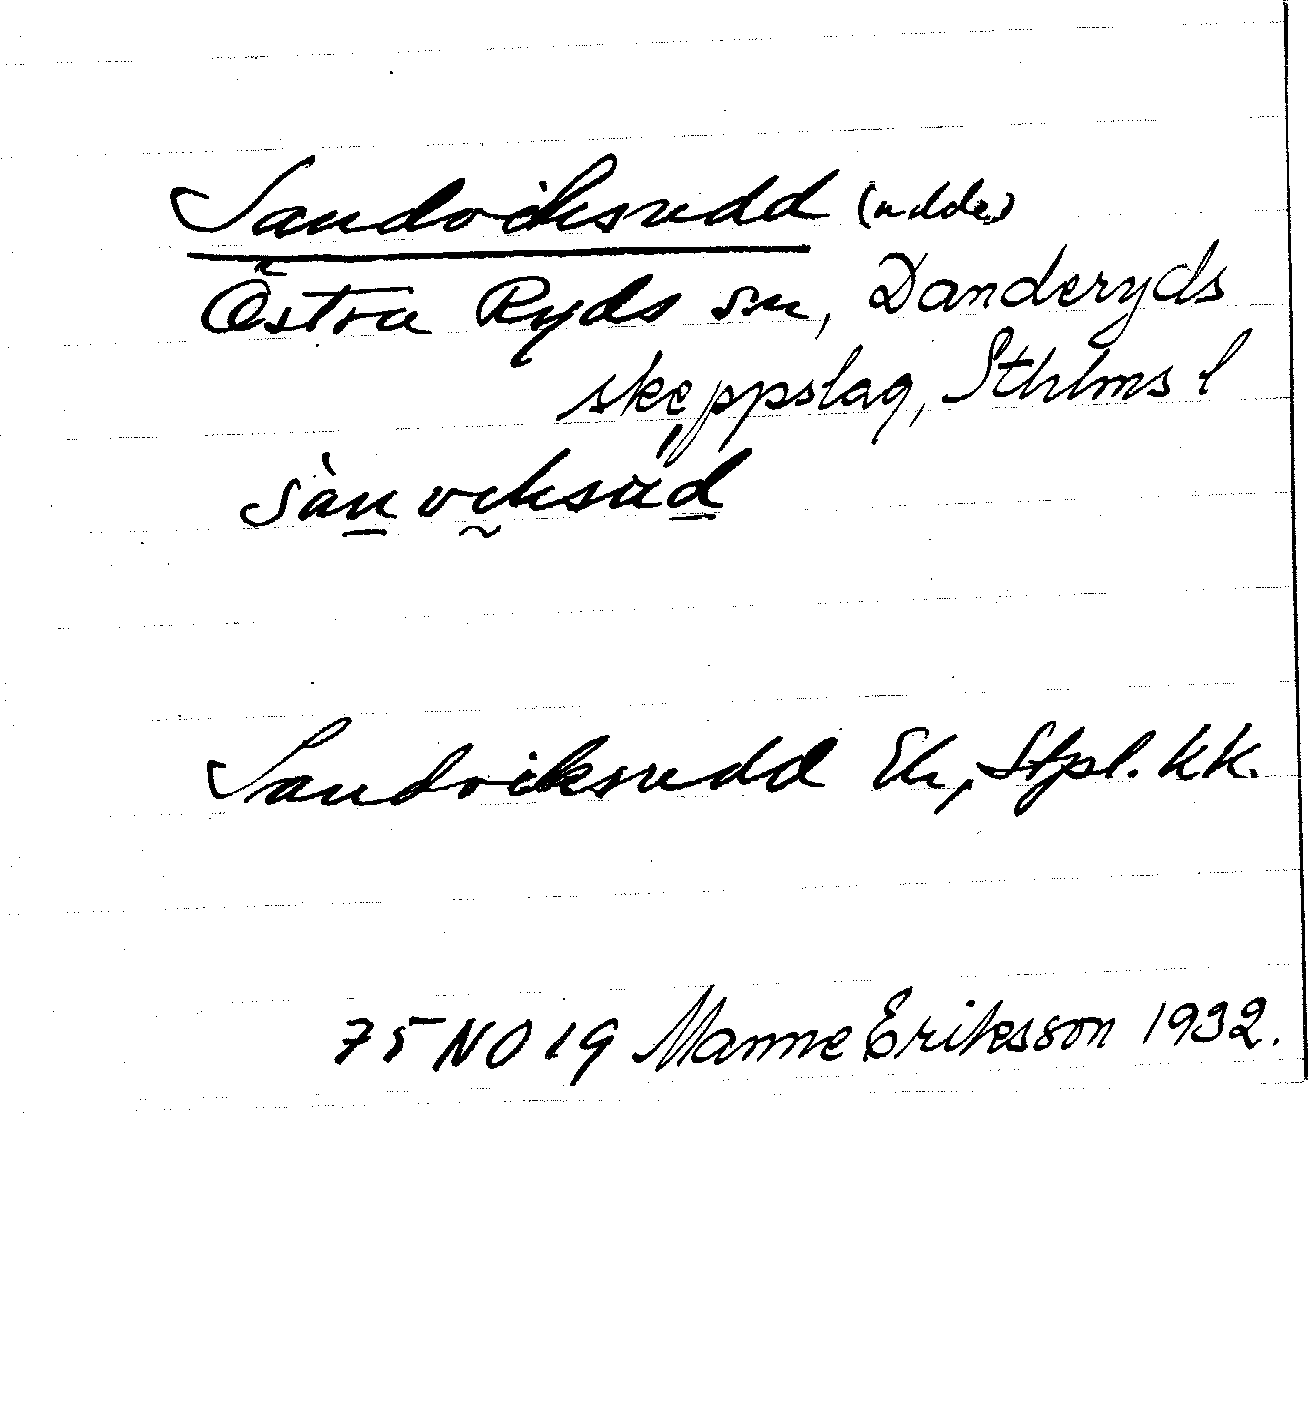 Sandviksudd (udde)
Östra Ryds sn, Danderyds
skeppslag, Sthlms l
sànviksud
Sandviksudd Ek, Stpl. kk.
75 NO 19 Manne Eriksson 1932.